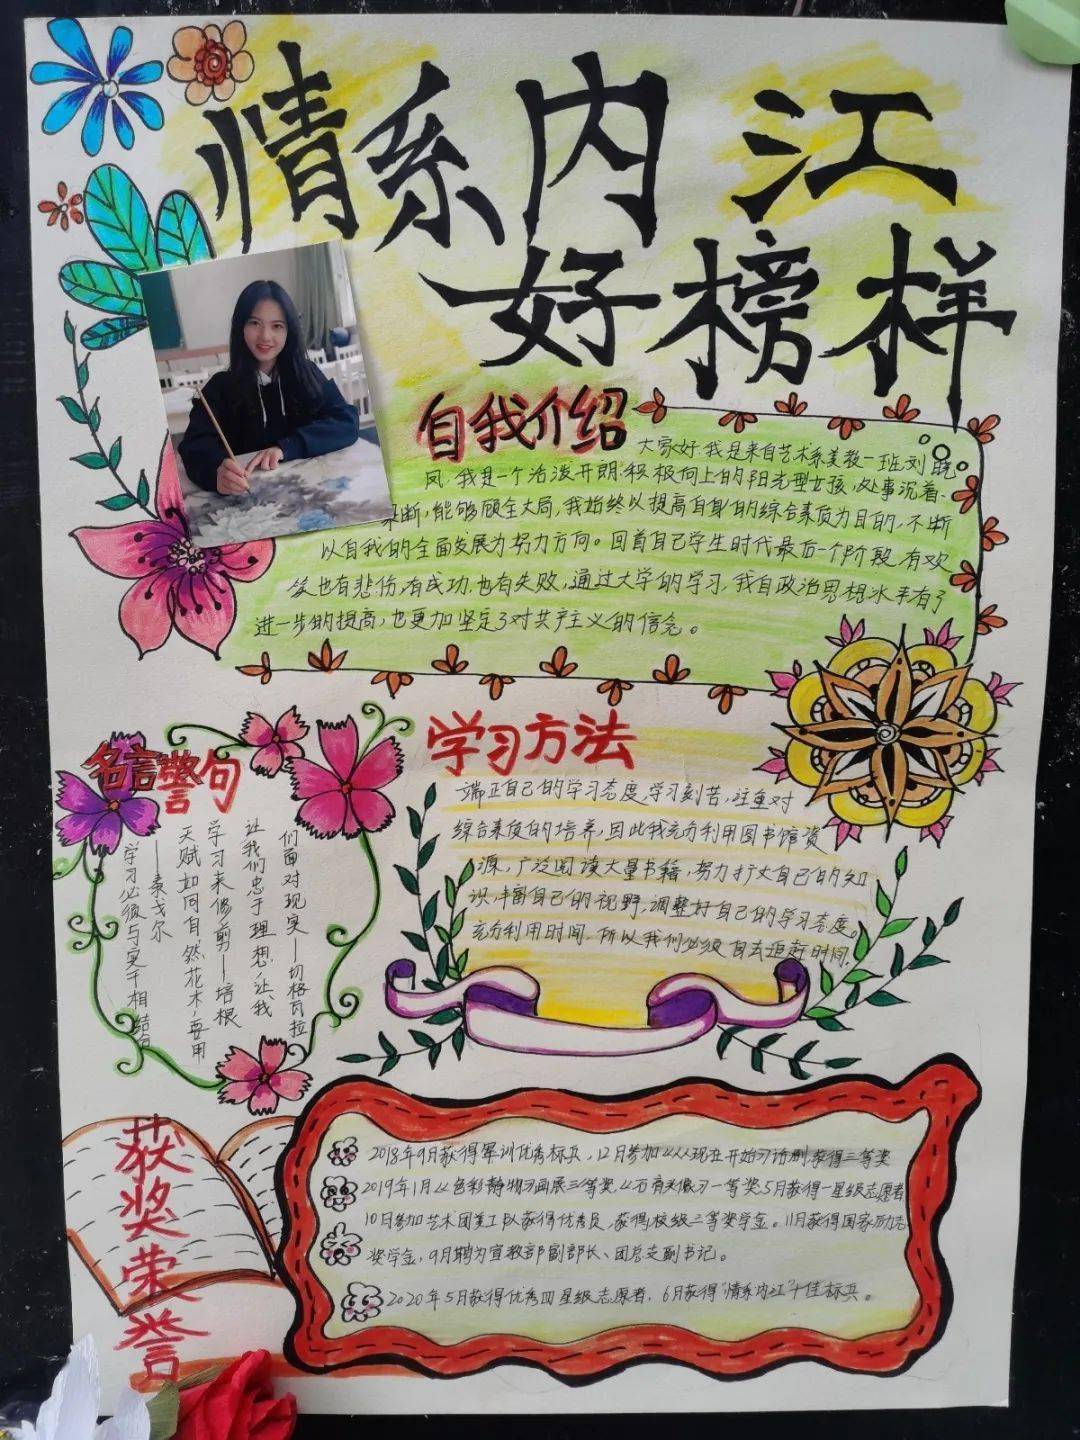 情系内江
好榜样
自我介绍
大家好,我是来自艺术系美教一班刘晓
凤,我是一个活泼开朗.积极向上的阳光型女孩,处事沉着、
果断,能够顾全大局,我始终以提高自身的综合素质为目的,不断
以自我的全面发展为努力方向。回首自己学生时代最后一个阶段,有欢
笑也有悲伤,有成功,也有失败,通过大学的学习,我自政治思想水平有了
进一步的提高,也更加坚定了对共产主义的信念。
名言警句
们面对现实——切格瓦拉
让我们忠于理想,让我
学习来修剪——培根
天赋如同自然花木,要用
——泰戈尔
学习必须与实干相结合
学习方法
端正自己的学习态度,学习刻苦,注重对
综合素质的培养,因此我充分利用图书馆资
源,广泛阅读大量书籍,努力扩大自己的知
识,丰富自己的视野,调整好自己的学习态度。
充分利用时间.所以我们必须自去追赶时间.
获奖荣誉
2018年9月获得军训优秀标兵,12月参加《从现在开始》话剧获得三等奖
2019年1月《色彩静物》画展三等奖《石膏头像》一等奖5月获得一星级志愿者
10月参加艺术团美工队获得优秀员,获得校级三等奖学金。11月获得国家励志
奖学金,9月聘为宣教部副部长、团总支副书记。
2020年5月获得优秀四星级志愿者,6月获得"情系内江"十佳标兵。